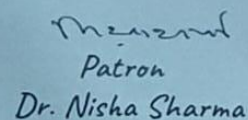 Patron
Dr. Nisha Sharma